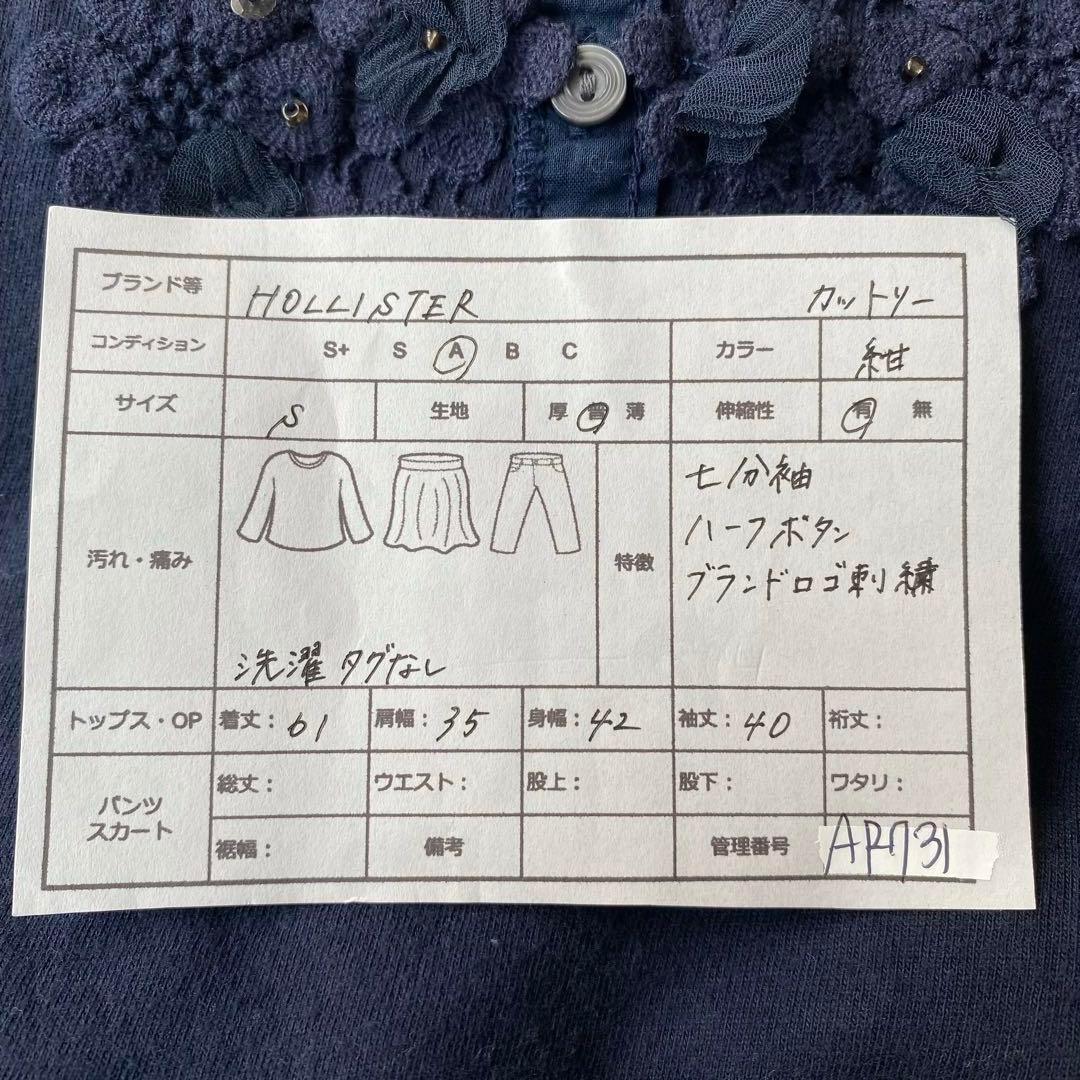 ブランド等 HOLLISTER カットソー
コンディション S+ S A B C カラー 紺
サイズ S 生地 厚 普 薄 伸縮性 有 無
汚れ・痛み 洗濯タグなし
特徴 七分袖
ハーフボタン
ブランドロゴ刺繍
トップス・OP 着丈：61 肩幅：35 身幅：42 袖丈：40 裄丈：
パンツ スカート 総丈： ウエスト： 股上： 股下： ワタリ：
裾幅： 備考 管理番号 AR731